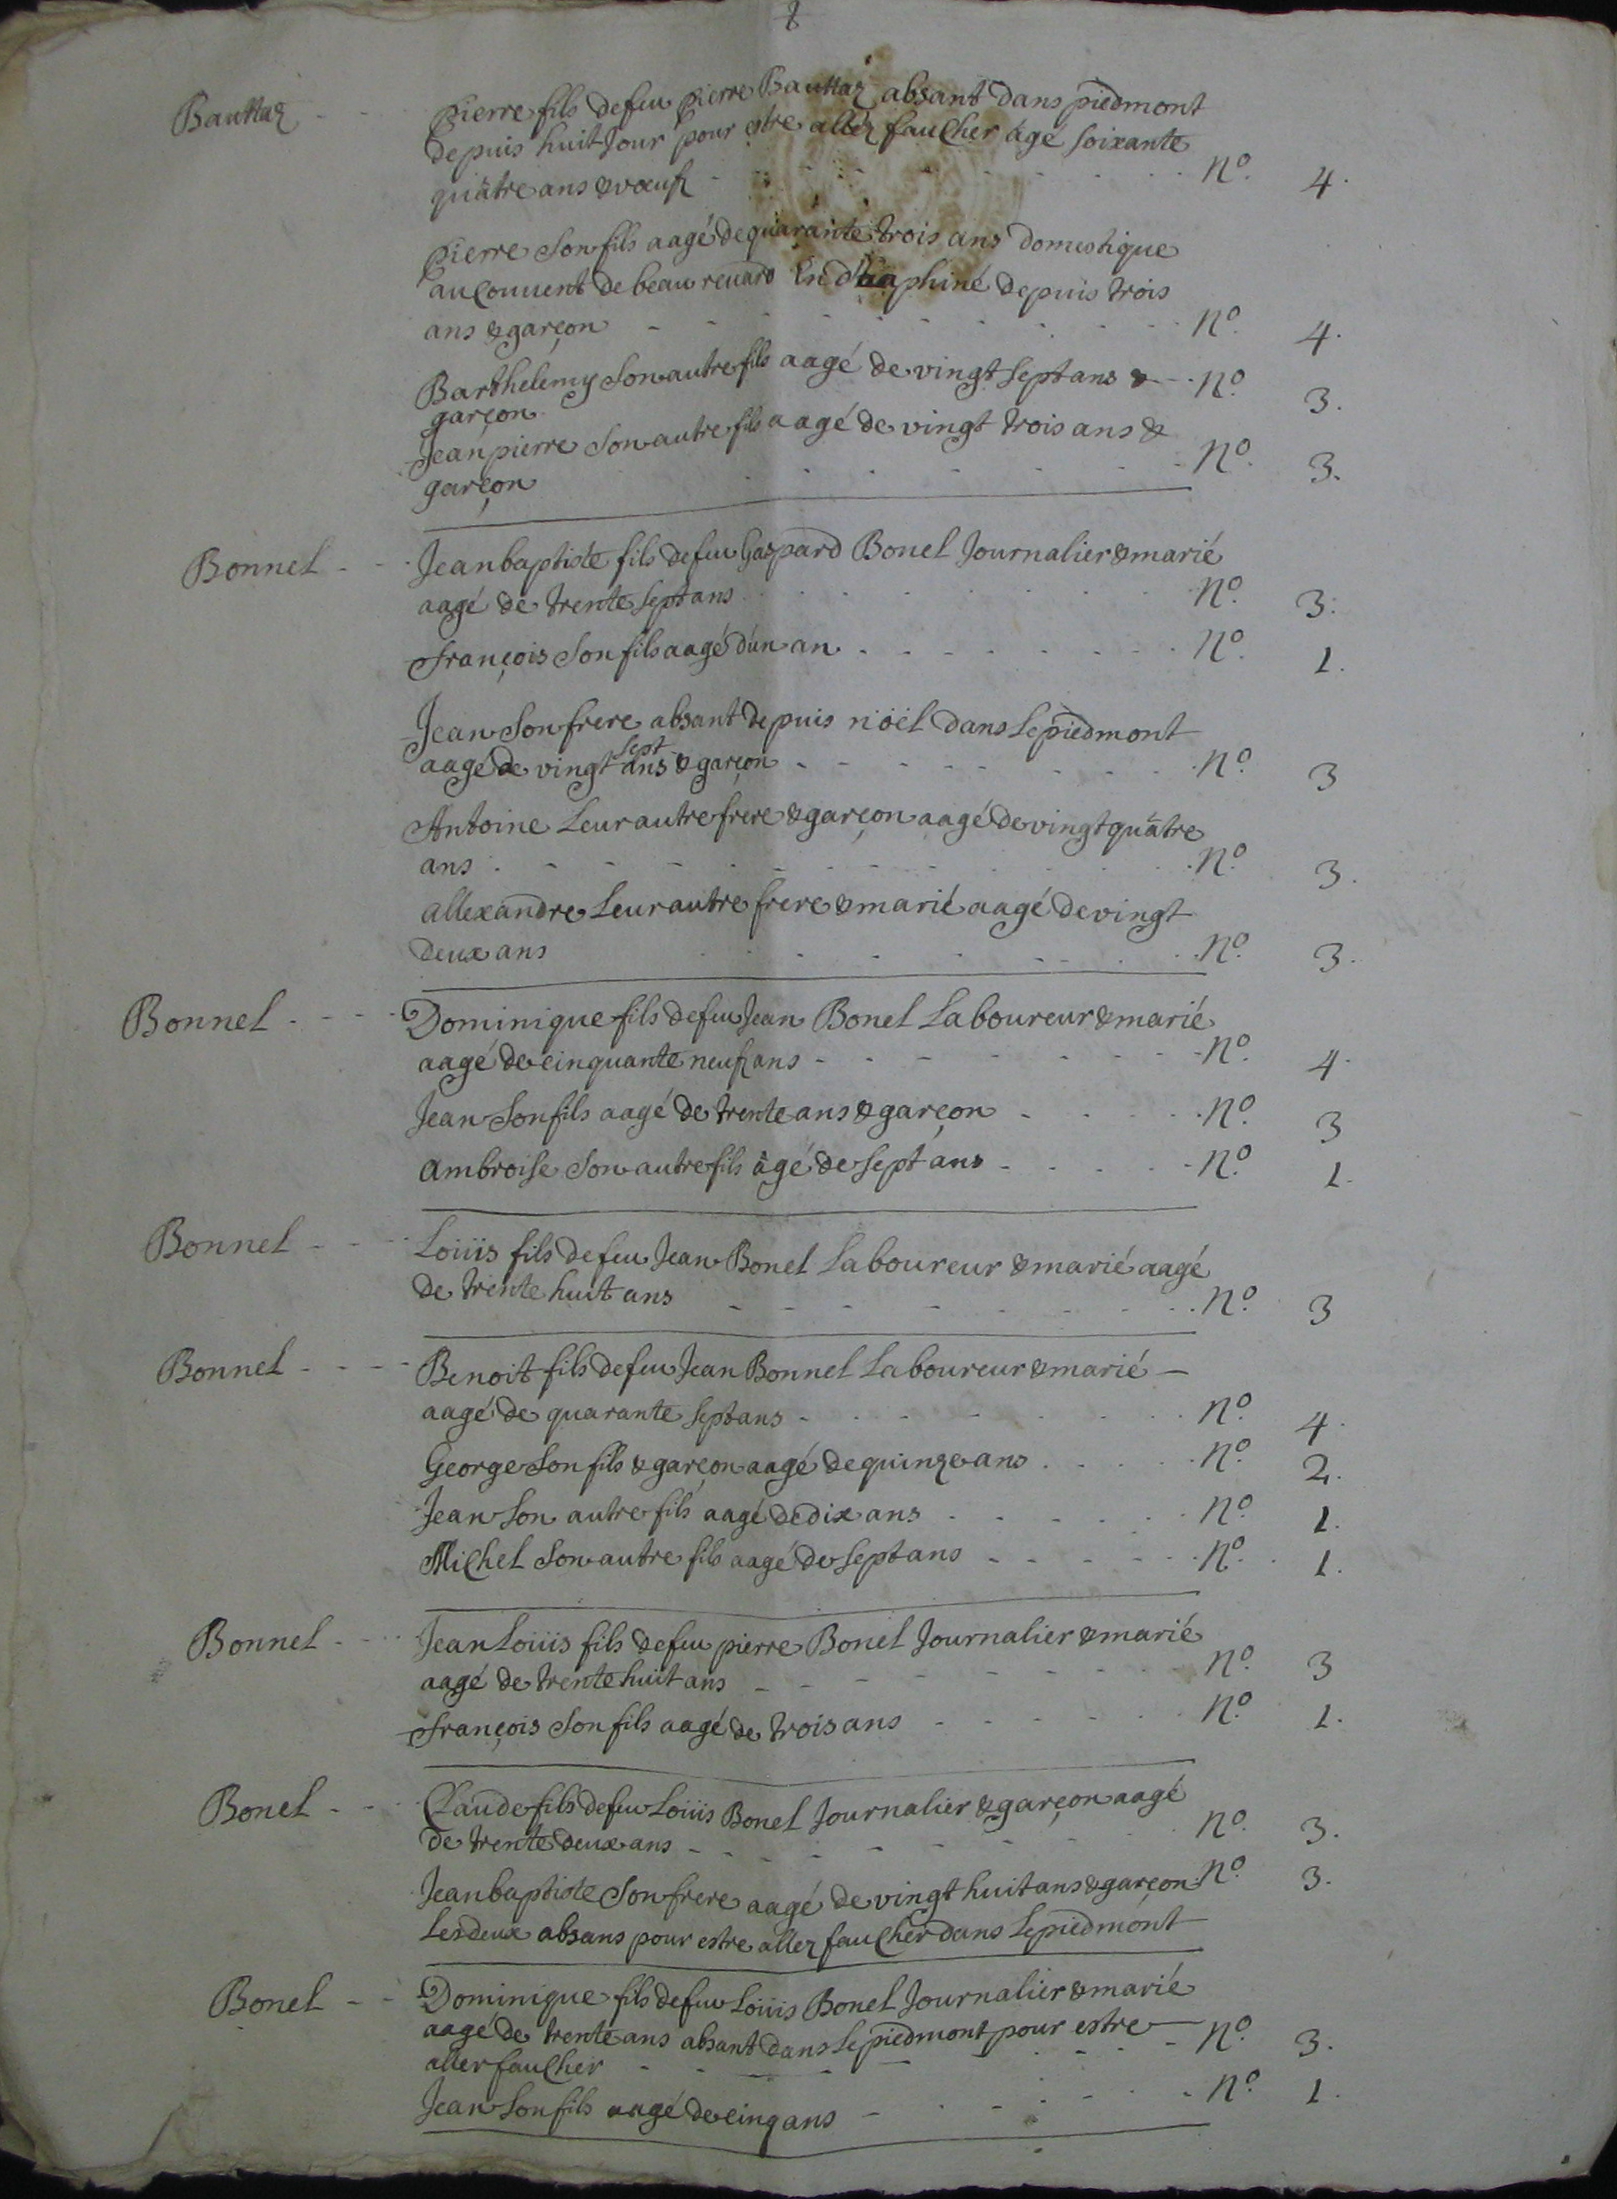 8
Bauttaz - - Pierre fils defeu pierre Bauttaz absant dans piedmont
depuis huit Jour pour estre allez faucher agé soixante
quatre ans & vœuf - - - - - - - - - N.o 4.
Pierre Son fils aagé de quarante trois ans domestique
au Couuent de beau reuard En daaphiné depuis trois
ans & garçon - - - - - - - - - N.o 4.
Barthélémy Son autre fils aagé de vingt Sept ans & - - N.o 3.
garçon
Jean pierre Son autre fils aagé de vingt trois ans &
garçon - - - - - - - N.o 3.
Bonnel - - Jean baptiste fils defeu Gaspard Bonel Journalier & marié
aagé de trente Sept ans - - - - - - - N.o 3.
François Son fils aagé d'un an - - - - - - - N.o 1.
Jean Son frere absant depuis nöel dans Le piedmont
sept
aagé de vingt ans & garçon - - - - - - - N.o 3
Antoine Leur autre frere & garçon aagé de vingt quatre
ans - - - - - - - - - - N.o 3.
allexandre Leur autre frere & marié aagé de vingt
deux ans - - - - - - - N.o 3.
Bonnel - - - - Dominique fils defeu Jean Bonel Laboureur & marié
aagé de cinquante neuf ans - - - - - - - - N.o 4.
Jean Son fils aagé de trente ans & garçon - - - - N.o 3
ambroise Son autre fils àgé de Sept ans - - - - - N.o 1.
Bonnel - - Loüis fils defeu Jean Bonel Laboureur & marié aagé
de trente huit ans - - - - - - - - - N.o 3
Bonnel - - - - Benoit fils defeu Jean Bonnel Laboureur & marié -
aagé de quarante Sept ans - - - - - - - - N.o 4.
George Son fils & garçon aagé de quinze ans - - - - N.o 2.
Jean Son autre fils aagé de dix ans - - - - - - N.o 1.
Michel Son autre fils aagé de Sept ans - - - - - N.o 1.
Bonnel - - Jean Loüis fils defeu pierre Bonel Journalier & marié
aagé de trente huit ans - - - - - - - - N.o 3
François Son fils aagé de trois ans - - - - - - N.o 1.
Bonel - - Claude fils defeu Loüis Bonel Journalier & garçon aagé
de trente deux ans - - - - - - - - N.o 3.
Jean baptiste Son frere aagé de vingt huit ans & garçon N.o 3.
Les deux absans pour estre allez faucher dans Le piedmont
Bonel - - Dominique fils defeu Loüis Bonel Journalier & marié
aagé de trente ans absant dans Le piedmont pour estre - N.o 3.
aller faucher - - - - - - - -
Jean Son fils aagé de cinq ans - - - - - - N.o 1.